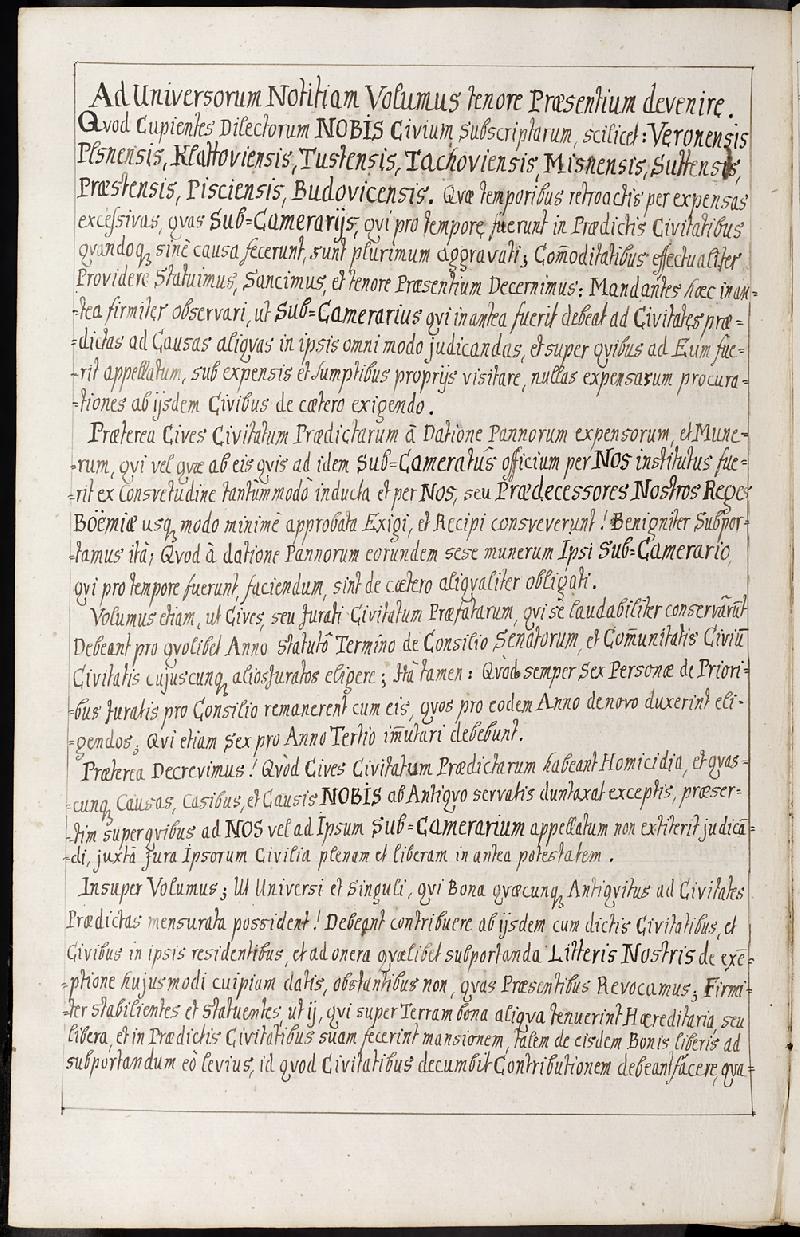 Ad Universorum Notitiam Volumus tenore Præsentium devenire.
Qvod Cupientes Dilectorum NOBIS Civium Subscriptarum, scilicet: Veronensis
Plsnensis, Klattoviensis, Tustensis, Tachoviensis, Misnensis, Suttensis,
Præstensis, Pisciensis, Budovicensis. Qvæ temporibus retroactis per expensas
excessivas, qvas Sub=Camerarijs, qvi pro tempore fuerunt in Prædictis Civitatibus
qvandoq, sinè causa fecerunt, sunt plurimum aggravati; Com̄oditatibus effectualiter
Providere Statuimus, Sancimus, et tenore Præsentium Decernimus: Mandantes hæc inan-
-tea firmiter observari, ut Sub=Camerarius qvi inantea fuerit debeat ad Civitates præ=
=dictas ad Causas aliqvas in ipsis omni modo judicandas, et super qvibus ad Eum fue-
-rit appellatum, sub expensis et sumptibus proprijs visitare, nullas expensarum procura-
-tiones ab ijsdem Civibus de cætero exigendo.
Præterea Cives Civitatum Prædictarum â Datione Pannorum expensorum, et Mune-
-rum, qvi vel qvæ ab eis qvis ad idem Sub=Cameratus officium per NOS institutus fue-
-rit ex Consvetudine tantummodò inducta et per NOS, seu Prædecessores Nostros Reges
Boëmiæ usq, modo minimè approbata Exigi, et Recipi consveverunt! Benigniter Suppor-
-tamus itâ; Qvod â datione Pannorum eorundem sese munerum Ipsi Sub=Camerario,
qvi pro tempore fuerunt, faciendum, sint de cætero aliqvaliter obligati.
Volumus etiam, ut Cives, seu Jurati Civitatum Præfatarum, qvi se laudabiliter conservârūt
Debeant pro qvolibet Anno statutô Termino de Consilio Senatorum, et Com̄unitatis Civiū
Civitatis cujuscunq, alios Juratos eligere; Ità tamen: Qvod semper Sex Personæ de Priori-
-bus Juratis pro Consilio remanerent cum eis, qvos pro eodem Anno denovo duxerint eli-
-gendos; Qvi etiam Sex pro Anno Tertio im̄utari debebunt.
Præterea Decrevimus! Qvòd Cives Civitatum Prædictarum habeant Homicidia, et qvas-
-cunq, Causas, Casibus, et Causis NOBIS ab Antiqvo servatis duntaxat exceptis, præser-
-tim super qvibus ad NOS vel ad Ipsum Sub=Camerarium appellatum non extiterit judicā=
-di, juxtâ Jura Ipsorum Civilia plenam et liberam in antea potestatem.
Insuper Volumus; Ut Universi et Singuli, qvi Bona qvæcunq, Antiqvitus ad Civitates
Prædictas mensurata possident! Debeant contribuere ab ijsdem cum dictis Civitatibus, et
Civibus in ipsis residentibus, et ad onera qvælibet subportanda Litteris Nostris de exē=
-ptione hujusmodi cuipiam datis, obstantibus non, qvas Præsentibus Revocamus; Firmi-
-ter stabilientes et Statuentes, ut ij, qvi super Terram bona aliqva tenuerint Hæreditaria, seu
libera, et in Prædictis Civitatibus suam fecerint mansionem, talem de eisdem Bonis liberis ad
subportandum eò levius, id qvod Civitatibus decumbit Contributionem debeant facere, qua=